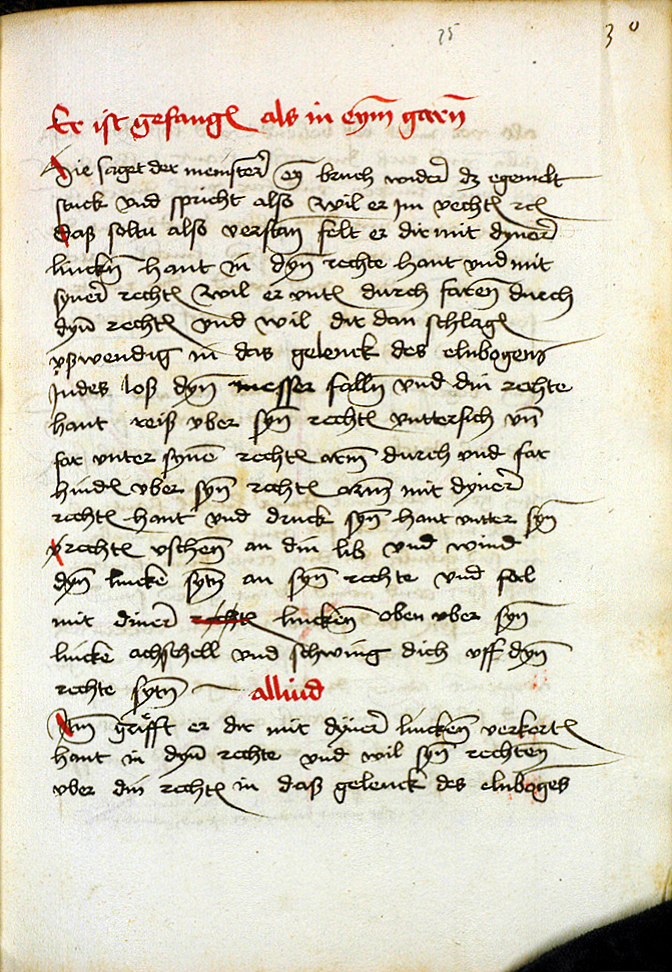 25
30
Er ist gefangen als in eym garn
Hie saget der meinster ey bruch wider dz egemelt
stuck vnd spricht also wil er jm vechten rc
Daß soltu also verstan felt er dir mit dyner
lincken hant in dyn rechte hant vnd mit
syner rechten wil er vnten durch faren durch
dyn rechten vnd wil dir dan schlagen
vßwendig in das gelenck des elnbogens
Indes loß dyn messer fallen vnd din rechte
hant reiß vber syn rechten vnttersich vn
far vnter syne rechten arm durch vnd far
hinden vber syn rechten arm mit dyner
rechten hant vnd druck syn hant vntter syn
rechten vschen an din lib vnd wind
dyn lincke syten an syn rechte vnd fal
mit diner rechten lincken oben vber syn
lincke achschell vnd schwing dich vff dyn
rechte syten
alliud
Item grifft er dir mit dyner lincken verkorten
hant in dyn rechte vnd wil syn rechten
vber din rechten in daß gelenck des elnboges